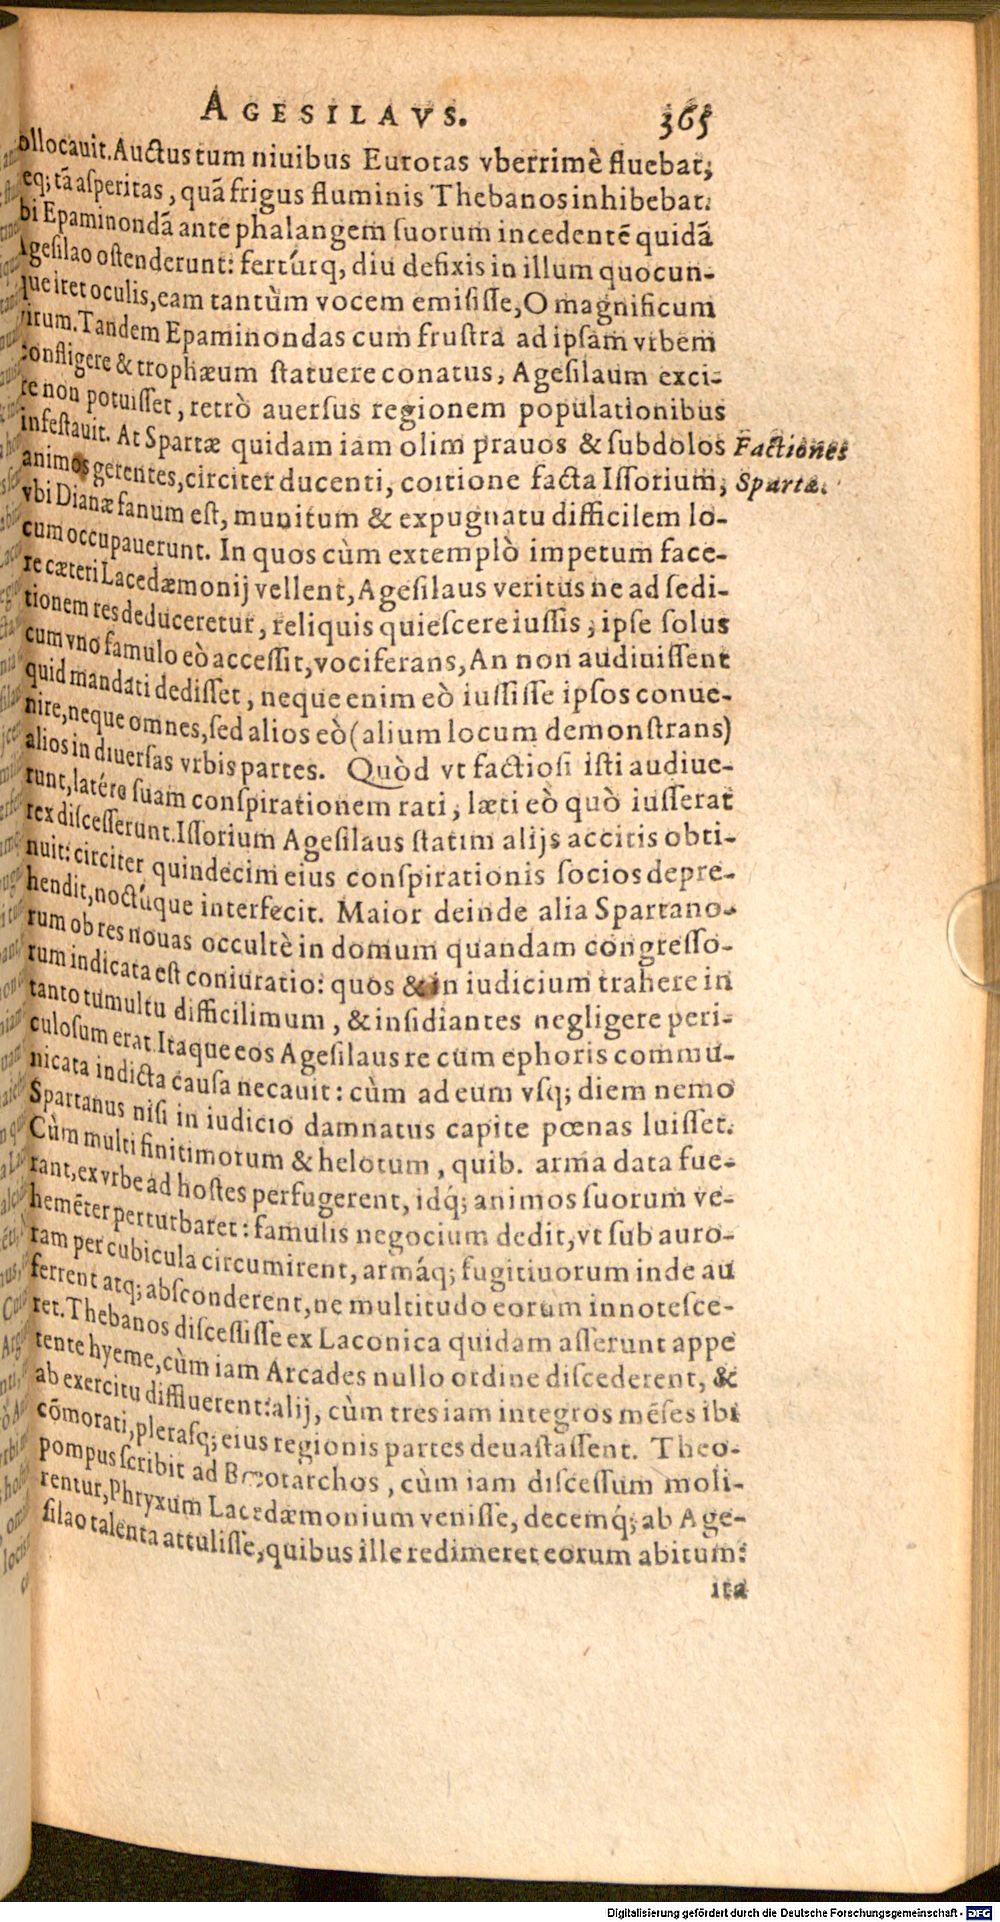 AGESILAVS. 365
ollocauit. Auctus tum niuibus Eurotas vberrimè fluebat;
eq; tã asperitas, quã frigus fluminis Thebanos inhibebat.
bi Epaminondã ante phalangem suorum incedentẽ quidã
Agesilao ostenderunt: fertúrq, diu defixis in illum quocun-
que iret oculis, eam tantùm vocem emisisse, O magnificum
virum. Tandem Epaminondas cum frustra ad ipsam vrbem
confligere & trophæum statuere conatus, Agesilaum exci-
re non potuisset, retrò auersus regionem populationibus
infestauit. At Spartæ quidam iam olim prauos & subdolos Factiones
animos gerentes, circiter ducenti, coitione facta Issorium, Spartæ.
vbi Dianæ fanum est, munitum & expugnatu difficilem lo-
cum occupauerunt. In quos cùm extemplò impetum face-
re cæteri Lacedæmonij vellent, Agesilaus veritus ne ad sedi-
tionem res deduceretur, reliquis quiescere iussis, ipse solus
cum vno famulo eò accessit, vociferans, An non audiuissent
quid mandati dedisset, neque enim eò iussisse ipsos conue-
nire, neque omnes, sed alios eò (alium locum demonstrans)
alios in diuersas vrbis partes. Quòd vt factiosi isti audiue-
runt, latére suam conspirationem rati, læti eò quò iusserat
rex discesserunt. Issorium Agesilaus statim alijs accitis obti-
nuit: circiter quindecim eius conspirationis socios depre-
hendit, noctúque interfecit. Maior deinde alia Spartano-
rum ob res nouas occultè in domum quandam congresso-
rum indicata est coniuratio: quos & in iudicium trahere in
tanto tumultu difficilimum, & insidiantes negligere peri-
culosum erat. Itaque eos Agesilaus re cum ephoris commu-
nicata indicta causa necauit: cùm ad eum vsq; diem nemo
Spartanus nisi in iudicio damnatus capite pœnas luisset.
Cùm multi finitimorum & helotum, quib. arma data fue-
rant, ex vrbe ad hostes perfugerent, idq́; animos suorum ve-
hemẽter perturbaret: famulis negocium dedit, vt sub auro-
ram per cubicula circumirent, armáq; fugitiuorum inde au
ferrent atq; absconderent, ne multitudo eorum innotesce-
ret. Thebanos discessisse ex Laconica quidam asserunt appe
tente hyeme, cùm iam Arcades nullo ordine discederent, &
ab exercitu diffluerent: alij, cùm tres iam integros mẽses ibi
cõmorati, plerasq; eius regionis partes deuastassent. Theo-
pompus scribit ad Bœotarchos, cùm iam discessum moli-
rentur, Phryxum Lacedæmonium venisse, decemq́; ab Age-
silao talenta attulisse, quibus ille redimeret eorum abitum:
ita
Digitalisierung gefördert durch die Deutsche Forschungsgemeinschaft - DFG